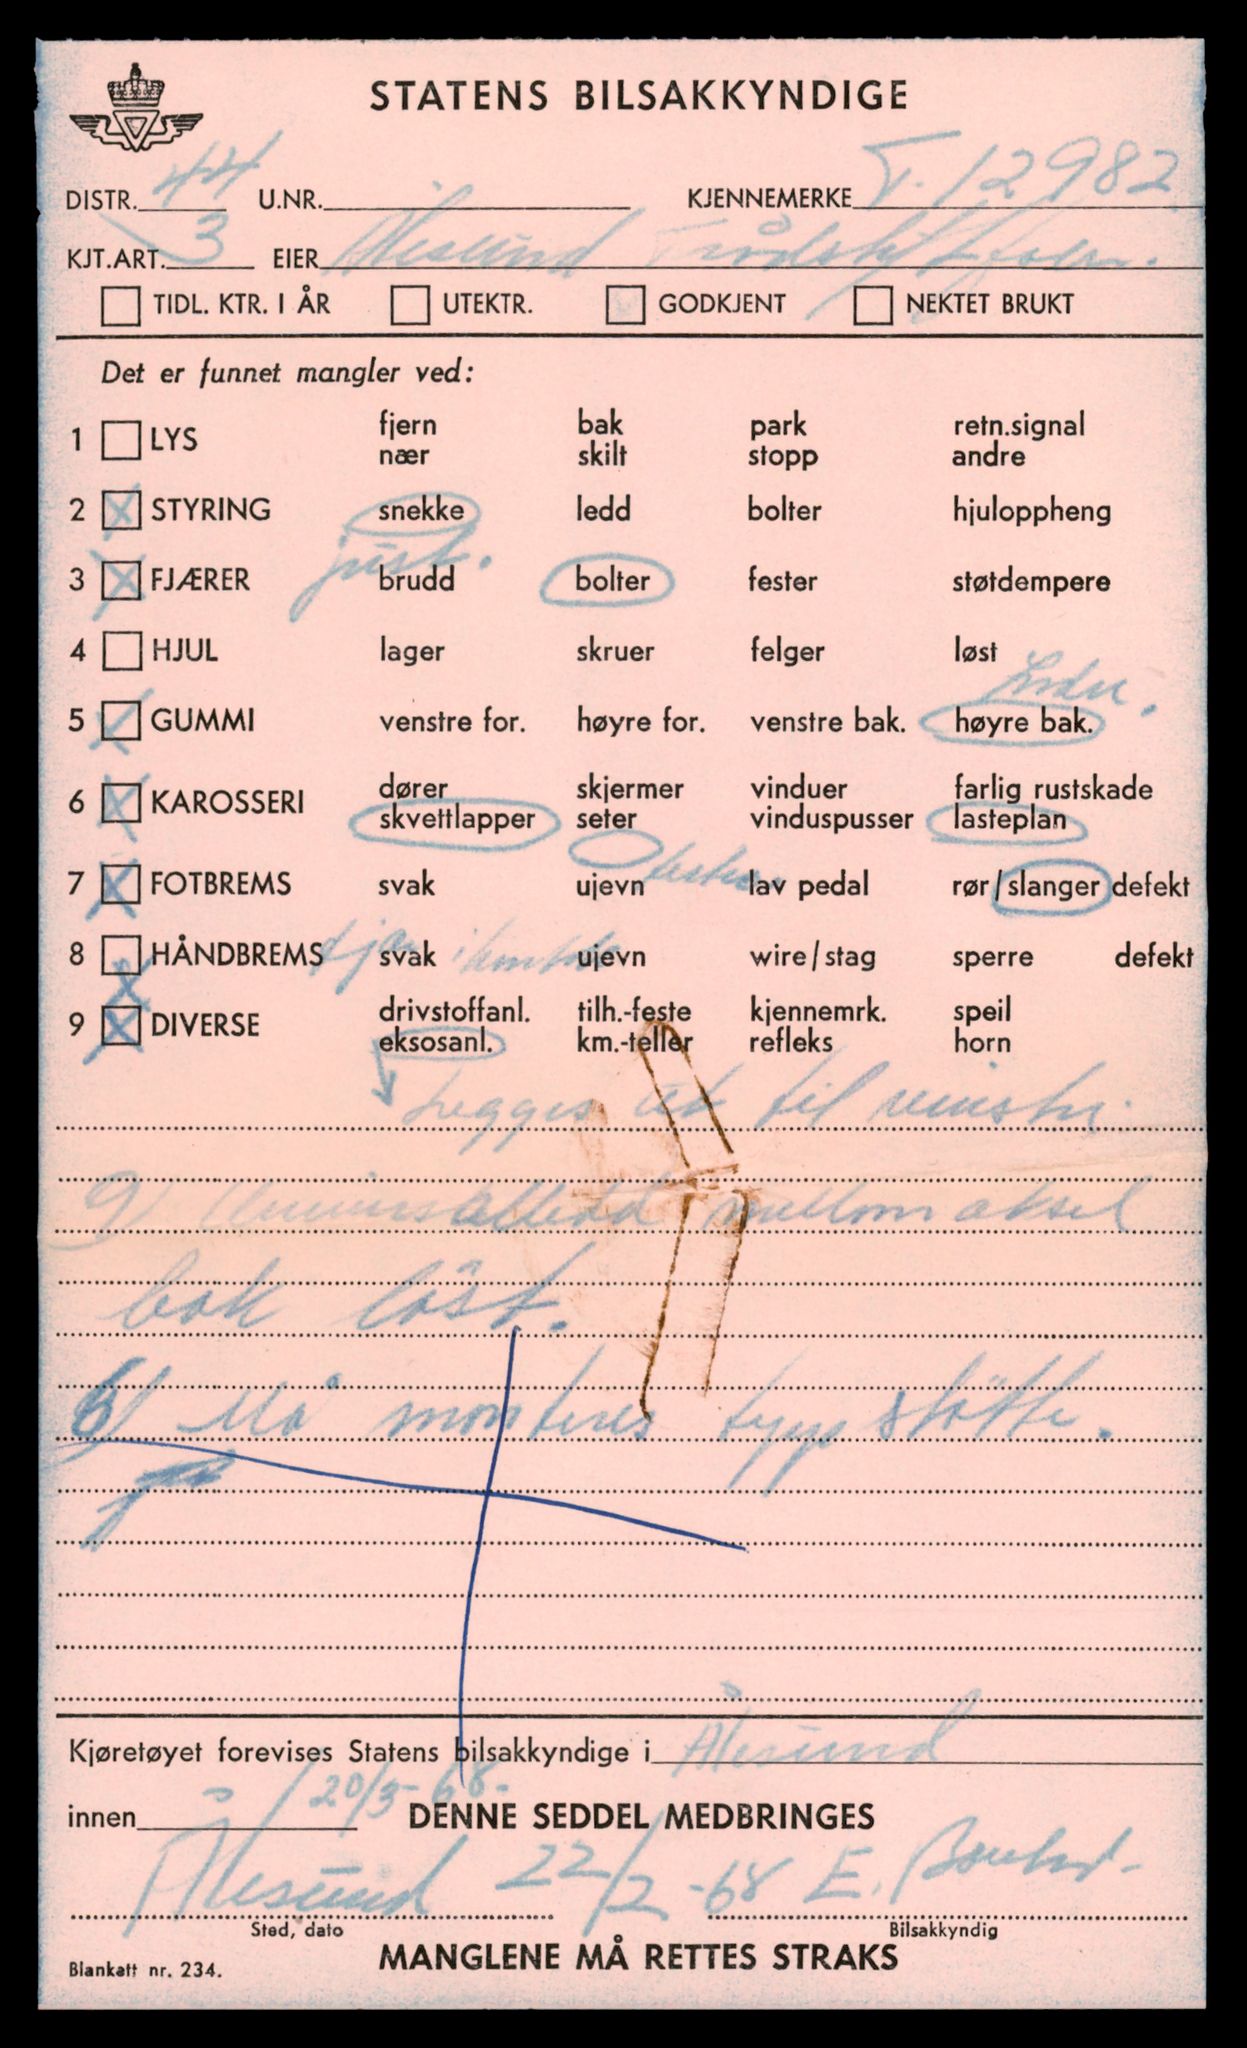 STATENS BILSAKKYNDIGE
DISTR. 44 U.NR. KJENNEMERKE T. 12982
KJT.ART. 3 EIER Ålesund
TIDL. KTR. I ÅR UTEKTR. GODKJENT NEKTET BRUKT
Det er funnet mangler ved:
fjern bak park retn.signal
1 LYS
nær skilt stopp andre
2 X STYRING snekke ledd bolter hjuloppheng
just.
3 X FJÆRER brudd bolter fester støtdempere
4 HJUL lager skruer felger løst
5 X GUMMI venstre for. høyre for. venstre bak. høyre bak.
dører skjermer vinduer farlig rustskade
6 X KAROSSERI
skvettlapper seter vinduspusser lasteplan
7 X FOTBREMS svak ujevn lav pedal rør/slanger defekt
8 HÅNDBREMS svak ujevn wire/stag sperre defekt
X
drivstoffanl. tilh.-feste kjennemrk. speil
9 X DIVERSE
eksosanl. km.-teller refleks horn
Legges ut til venstre.
9) Universalledd mellomaksel
bak løst.
6) Må monteres tipp støtte.
Kjøretøyet forevises Statens bilsakkyndige i Ålesund
innen 20/3-68. DENNE SEDDEL MEDBRINGES
Ålesund 22/2-68 E.
Sted, dato Bilsakkyndig
Blankett nr. 234. MANGLENE MÅ RETTES STRAKS